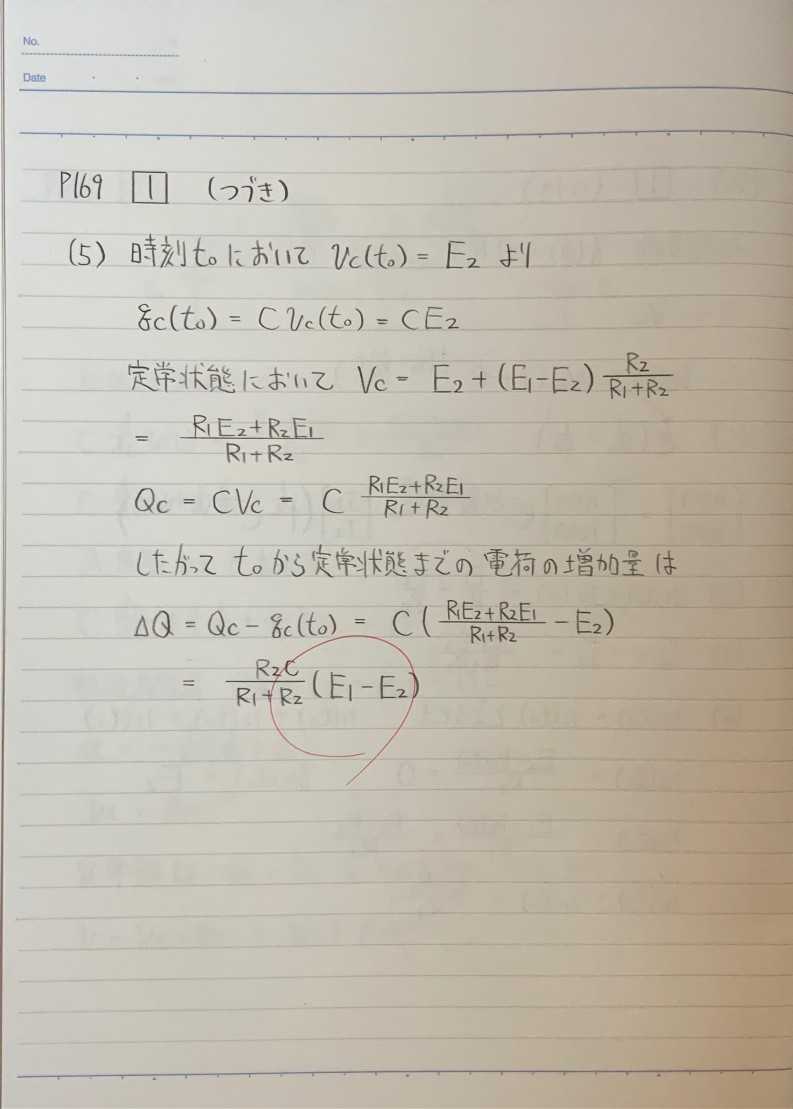 No.
Date
P169 1 (つづき)
(5) 時刻t₀において Vc(t₀) = E₂ より
qc(t₀) = C Vc(t₀) = CE₂
定常状態において Vc = E₂ + (E₁-E₂) R₂/(R₁+R₂)
= (R₁E₂+R₂E₁)/(R₁+R₂)
Qc = CVc = C (R₁E₂+R₂E₁)/(R₁+R₂)
したがって t₀から定常状態までの電荷の増加量は
ΔQ = Qc - qc(t₀) = C((R₁E₂+R₂E₁)/(R₁+R₂) - E₂)
= R₂C/(R₁+R₂) (E₁-E₂)